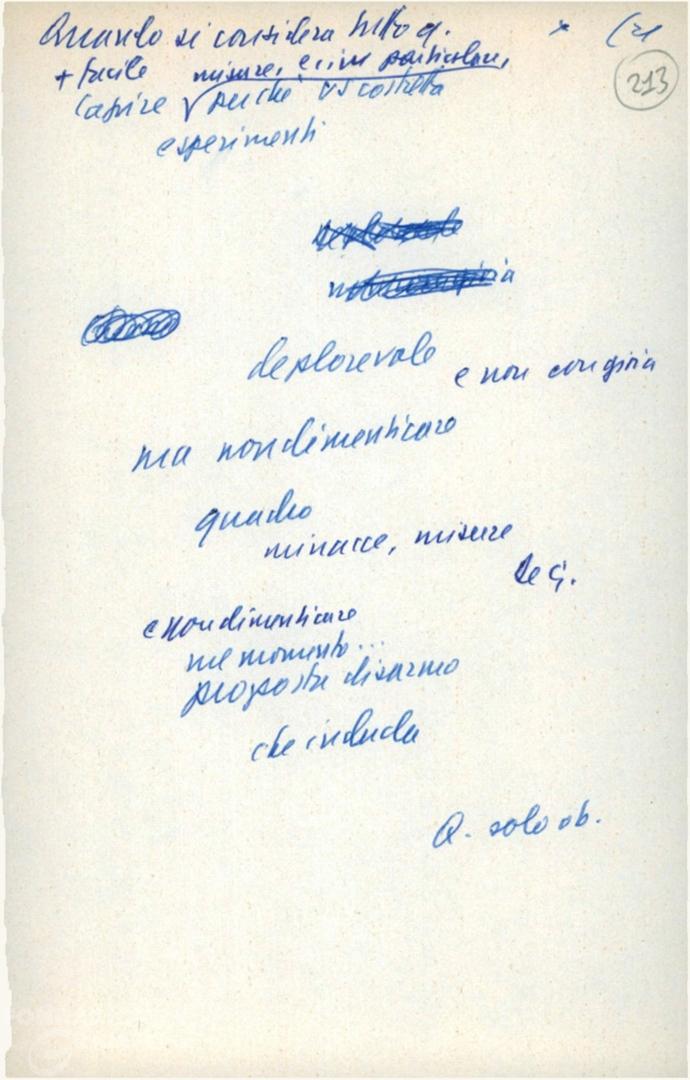 Quando si considera tutto q. x (21
213
+ facile misure, e in particolare,
Capire √ perché US costretta
esperimenti
deplorevole e non con gioia
ma non dimenticare
quadro
minacce, misure
e non dimenticare
nel momento...
proposta disarmo
che includa
Q. solo ob.